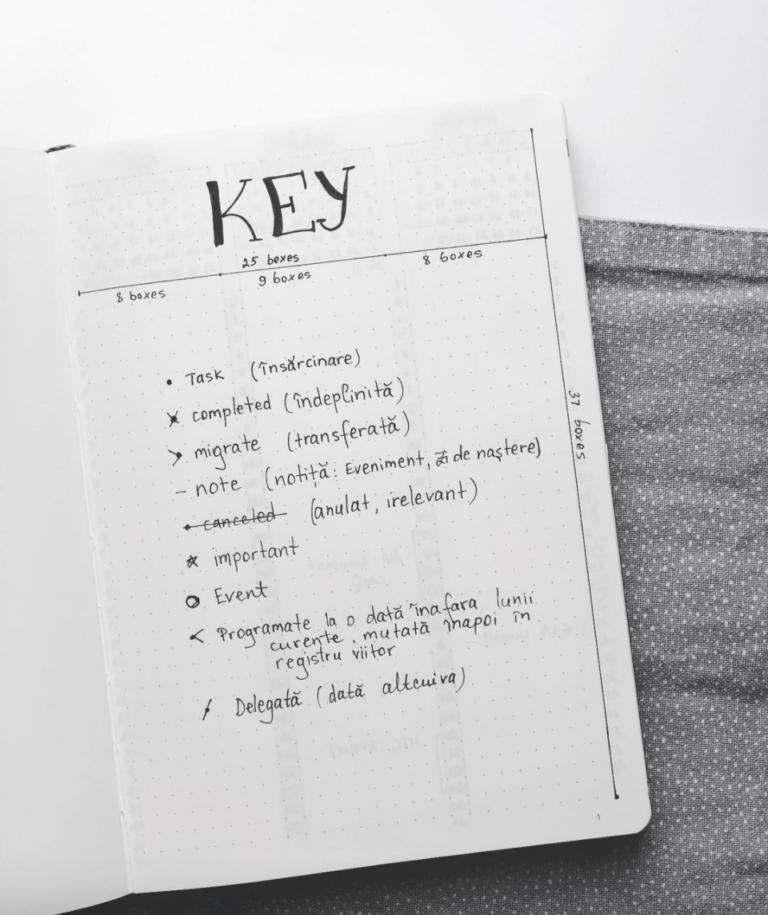 KEY
25 boxes
8 boxes
9 boxes
8 boxes
37 boxes
• Task (însărcinare)
x completed (îndeplinită)
> migrate (transferată)
– note (notiță: Eveniment, zi de naștere)
• canceled (anulat, irelevant)
* important
o Event
< Programate la o dată înafara lunii
curente, mutată înapoi în
registru viitor
/ Delegată (dată altcuiva)
1